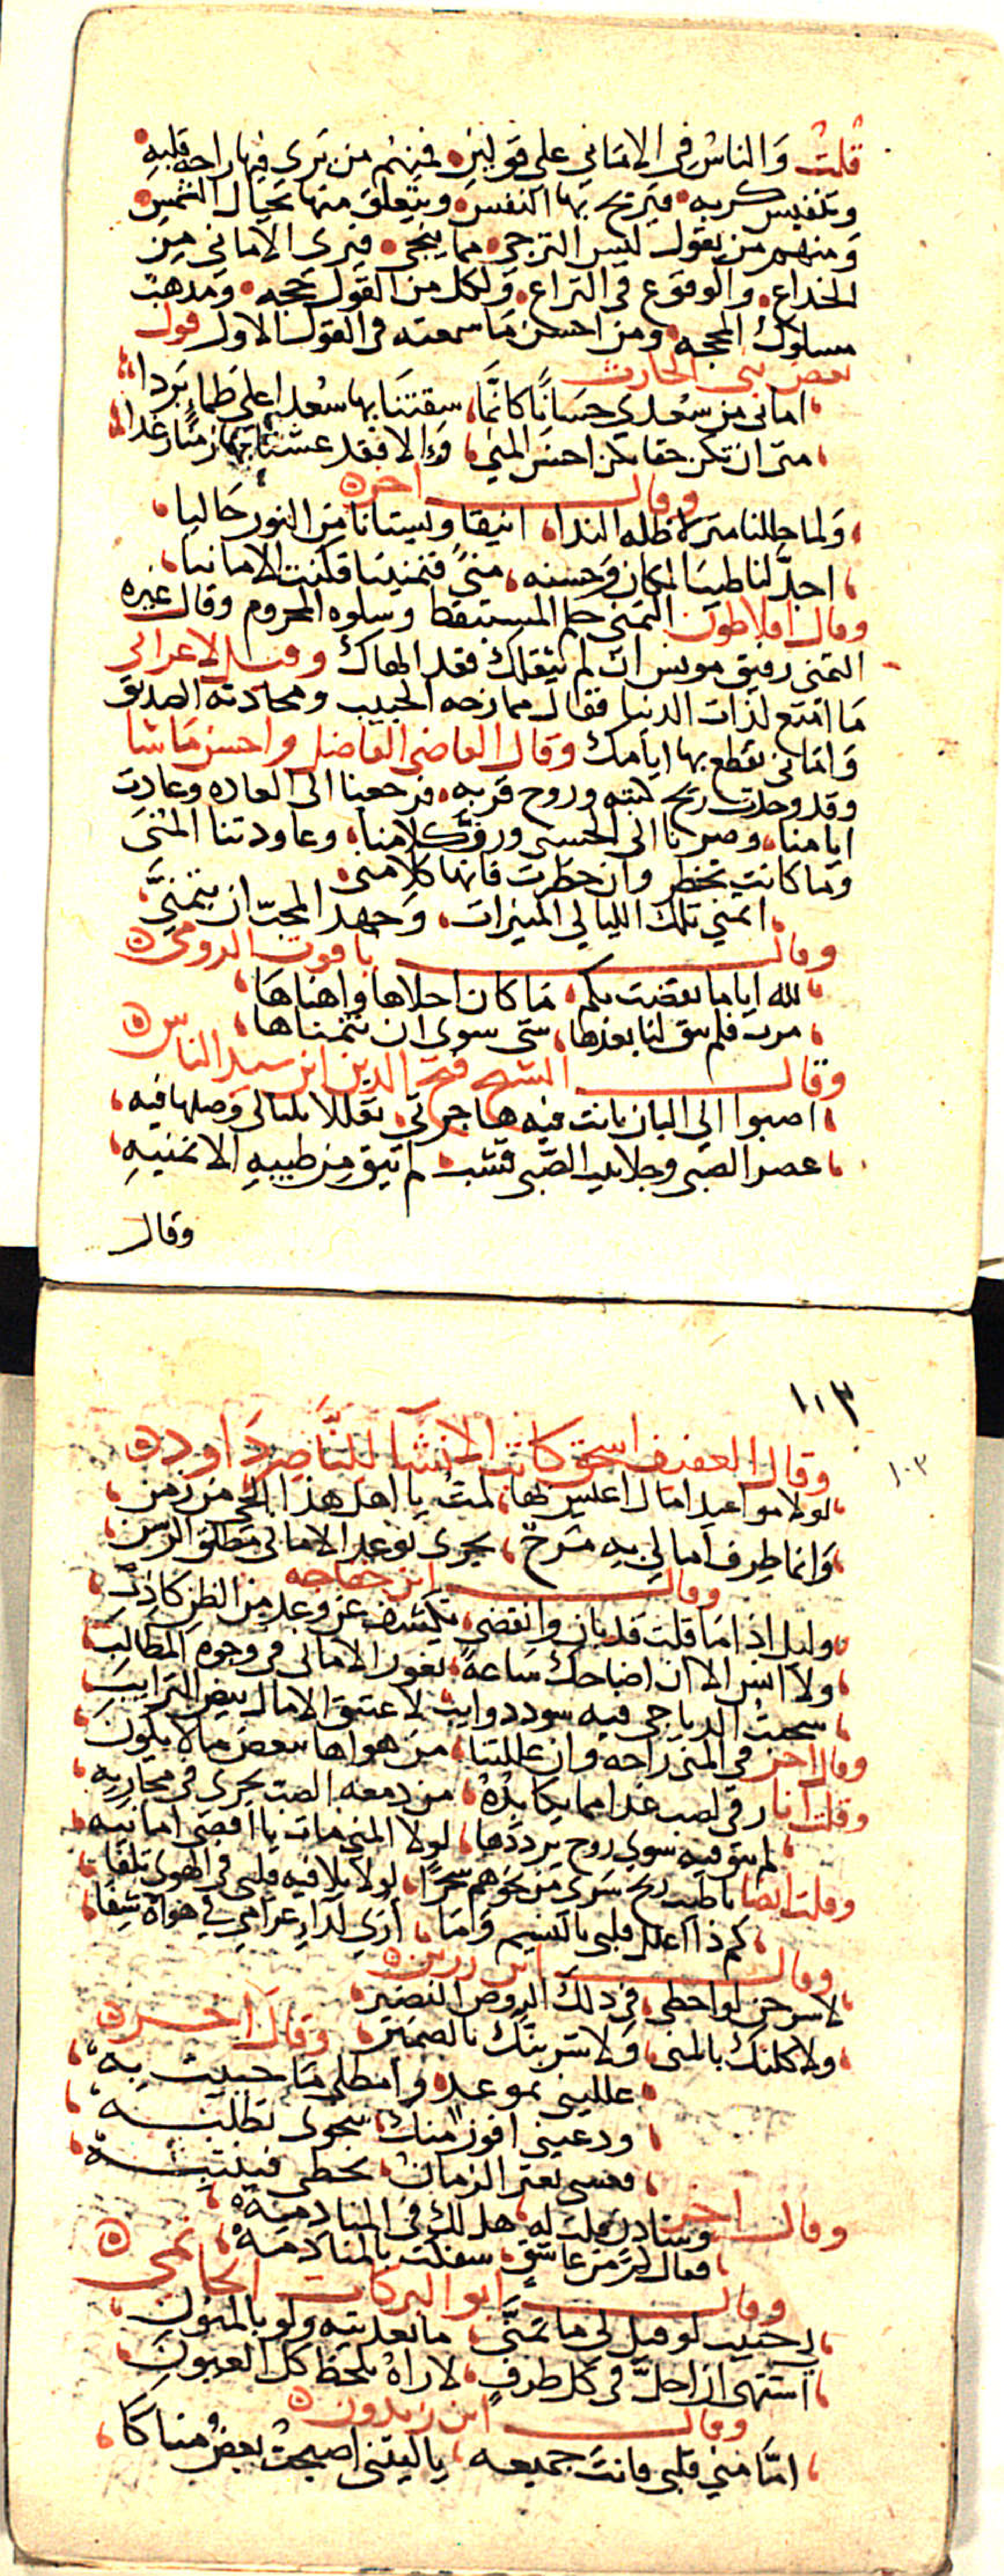 قلت والناس في الاماني علي قولين فمنهم من يري فيها راحه قلبه
وتنفيس كربه فيريح بها النفس ويتعلق منها بحبال الشمس
ومنهم من يقول ليس الترجي مما ينجي فيري الاماني من
الخداع والوقوع في النزاع ولكل من القول حجه ومذهب
مسلوك المحجه ومن احسن ما سمعته في القول الاول قول
بعض بني الحارث
اماني من سعدي حسانا كانما سقتنا بها سعدي علي ظماء بردا
متى ان تكن حقا تكن احسن المني والا فقد عشنا بها زمنا رغدا
وقال اخر
ولما حللنا منزلا طله الندا انيقا وبستانا من النور حاليا
اجد لنا طيب المكان وحسنه مني فتمنينا فكنت الامانيا
وقال افلاطون التمني حلم المستيقظ وسلوه المحروم وقال غيره
التمني رفيق مونس ان لم ينفعك فقد الهاك وقيل لاعرابي
ما امتع لذات الدنيا فقال ممازحه الحبيب ومحادثه الصديق
واماني تقطع بها ايامك وقال القاضي الفاضل واحسن ما شا
وقد وجدت ريح كتبه وروح قربه فرجعنا الي العاده وعادت
ايامنا وصرنا الي الحسنى ورق كلامنا وعاودتنا المنى
وما كانت تخطر وان خطرت فانها كلا منى
اتمني تلك الليالي المنيرات وجهد المحب ان يتمني
وقال ياقوت الرومي
لله اياما تقضت بكم ما كان احلاها واهناها
مرت فلم يبق لنا بعدها شي سوي ان نتمناها
وقال الشيخ فتح الدين ابن سيد الناس
اصبوا الي البان بانت فيه هاجرتي تعللا بليالي وصلها فيه
عصر الصبى وجلابيب الصبى قشب لم تبق من طيبه الا تمنيه
وقال
١٠٣
١٠٣
وقال العفيف اسحق كاتب الانشا للناصر داود
لولا مواعيد امال اعيش بها لمت يا اهل هذا الحي من زمن
وانما طرف امالي به مرح يجري بوعد الاماني مطلق الرسن
وقال ابن خفاجه
وليل اذا ما قلت قد بان وانقضى تكشف عن وعد من الظن كاذب
ولا انس الا ان اضاحك ساعة ثغور الاماني في وجوه المطالب
سحبت الدياجي فيه سود دوايب لاعتنق الامال بيض الترايب
وقال اخر في المني راحه وان عللتنا من هواها ببعض ما لا يكون
وقلت انا رق لصب غدا مما يكابده من دمعه الصب يجري في مجاريه
لم يبق فيه سوي روح يرددها لولا المني مات يا اقصى امانيه
وقلت ايضا يا طيب ريح سرى من نحوهم سحرا لولا تلافيه قلبي في الهوي تلفا
كم ذا اعلل قلبي بالنسيم وما اري لداء غرامي في هواه شفا
وقال ابن رزين
لاسرحن لواحظي في ذلك الروض النضير
ولاكلنك بالمنى ولاشربنك بالضمير وقال اخر
علليني بموعد وامطلي ما حييت به
ودعيني افوز منك بنجوى تطلبه
فعسى يعثر الزمان بحظي فينتبه
وقال اخر وشادن قلت له هل لك في المنادمه
فقال كم من عاشق سفكت بالمنا دمه
وقال ابو البركات الحاتمي
لي حبيب لو قيل لي ما تمنى ما تعديته ولو بالمنون
اشتهى ان احل في كل طرف لاراه بلحظ كل العيون
وقال ابن زيدون
اما مني قلبي فانت جميعه ياليتني اصبحت بعض مناكا